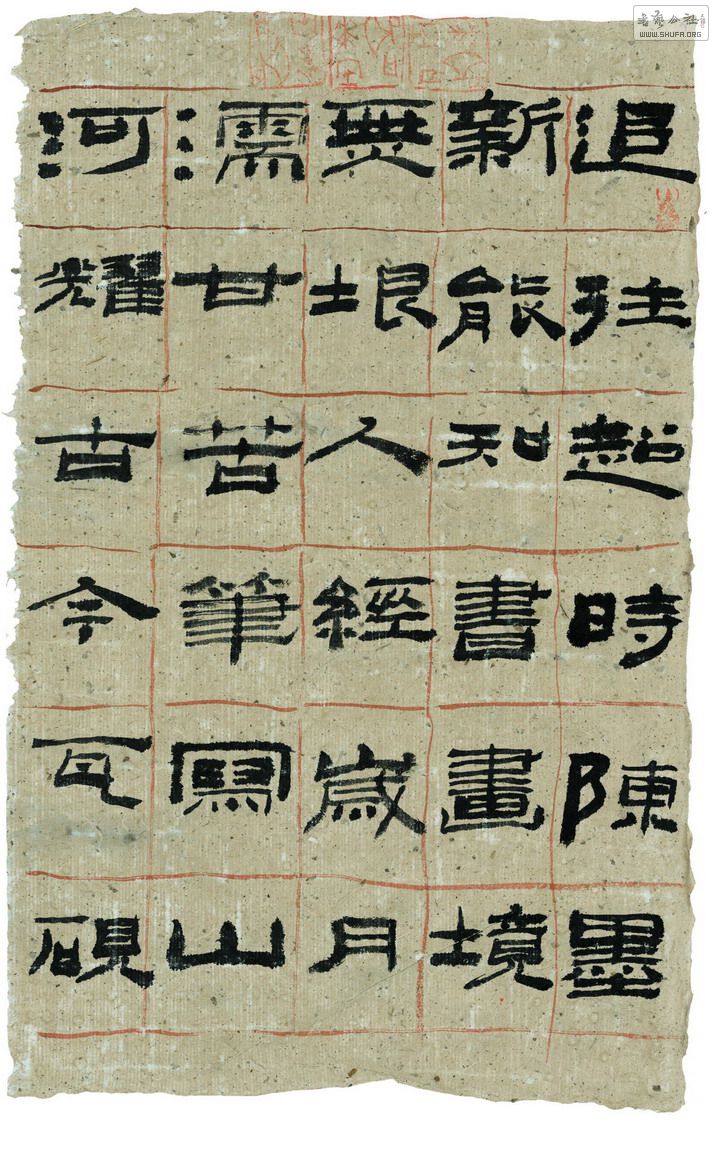 追往超時陳墨
新能知書畫境
無垠人經歲月
濡甘苦筆寫山
河耀古今瓦硯
WWW.SHUFA.ORG